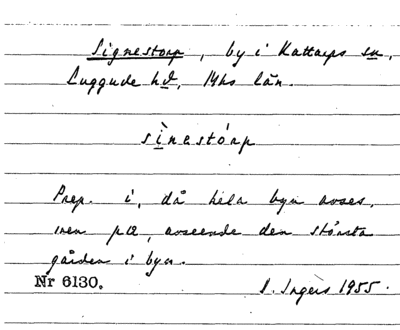 Signestorp, by i Kattarps sn,
Luggude hd, Mhs län.
sìnestórp
Prep. i, då hela byn avses,
men på, avseende den största
gården i byn.
Nr 6130.
I. Ingers 1955.